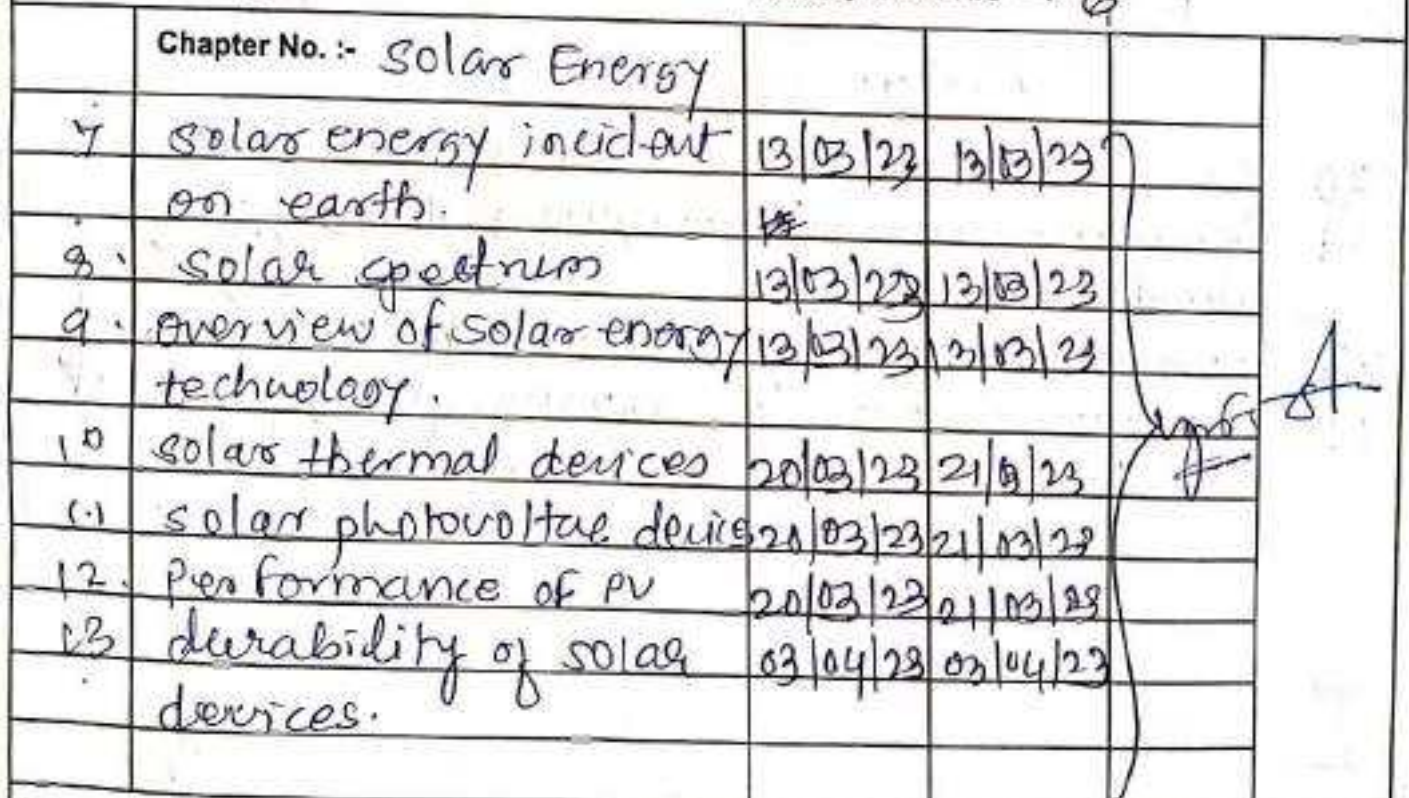 Chapter No. :- Solar Energy
7 solar energy incident 13/03/23 13/03/23
on earth.
8. solar spectrum 13/03/23 13/03/23
9. overview of solar energy 13/03/23 13/03/23
technology.
10 solar thermal devices 20/03/23 21/3/23
11 solar photovoltae device 20/03/23 21/03/23
12. Performance of PV 20/03/23 21/03/23
13 durability of solar 03/04/23 03/04/23
devices.